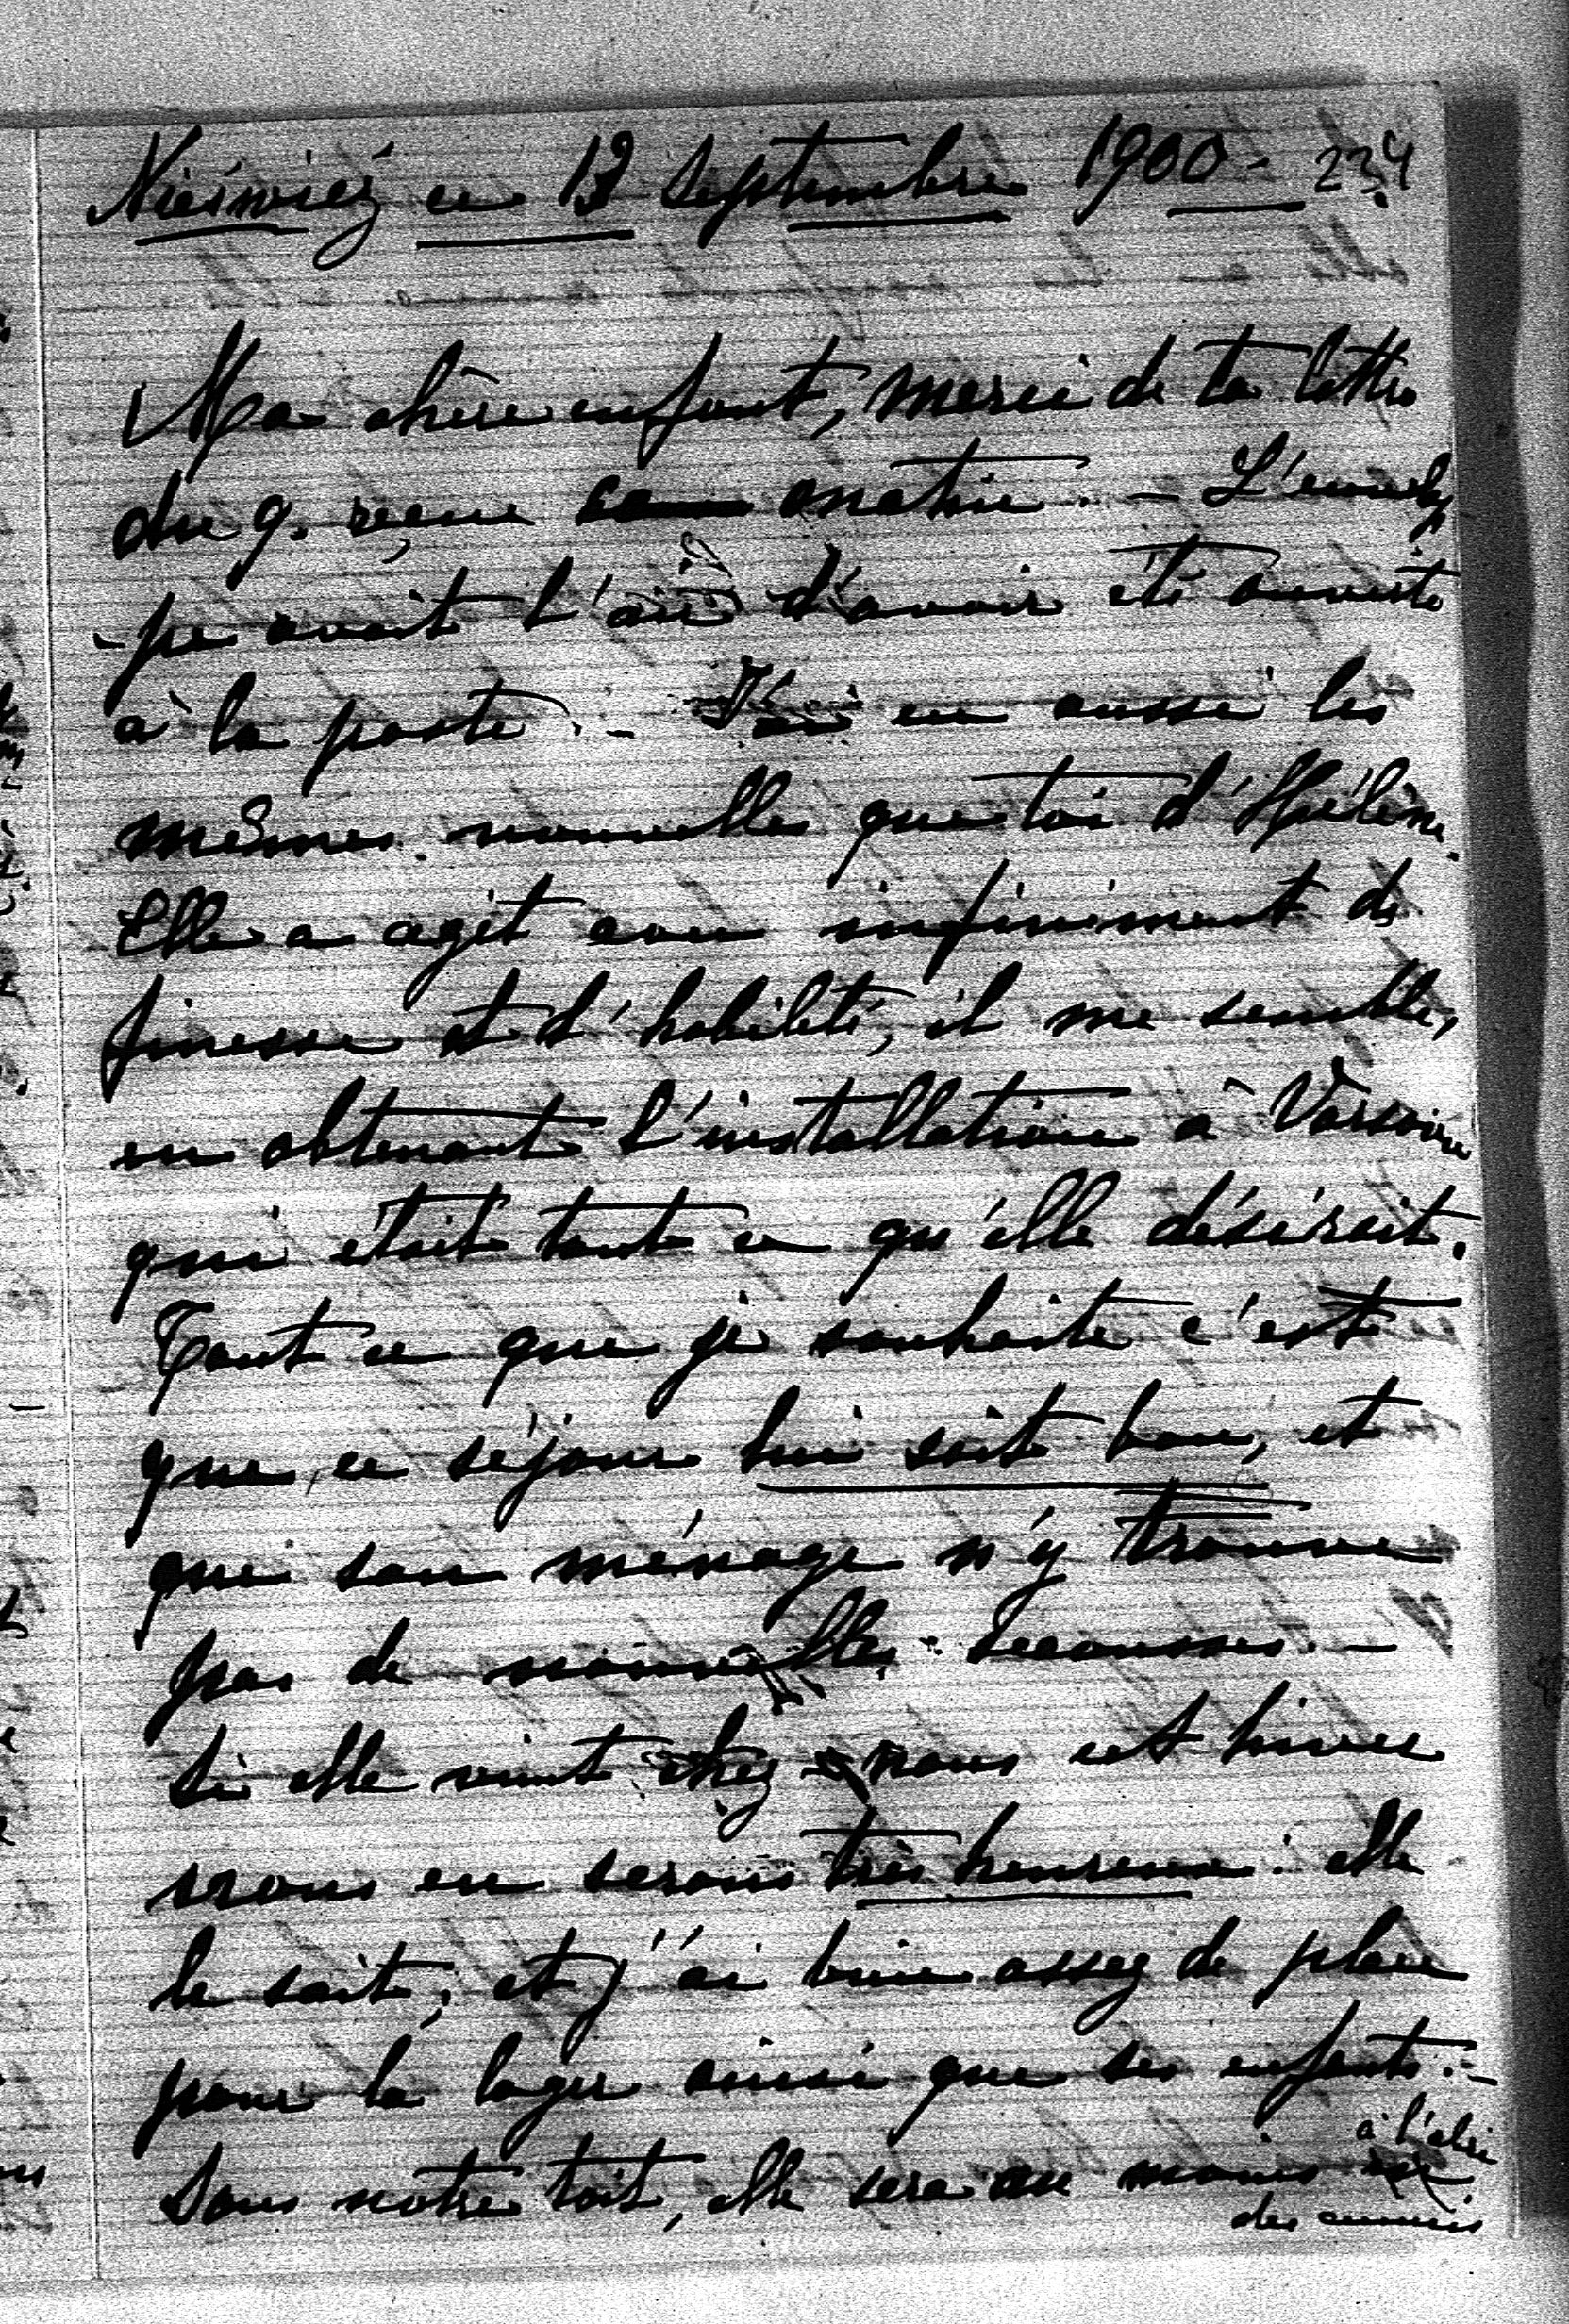 Nieśwież ce 13 Septembre 1900 - 234
Ma chère enfant, merci de ta lettre
du 9. reçue ce matin. - L'envelop
-pe avait l'air d'avoir été ouverte
à la poste. - J'ai eu aussi les
mêmes nouvelles que toi d'Hélène.
Elle a agit avec infiniment de
finesse et d'habileté, il me semble,
en obtenant l'installation à Varsovie
qui était tout ce qu'elle désirait.
Tout ce que je souhaite c'est
que ce séjour lui soit bon, et
que son ménage n'y trouve
pas de nouvelles secousses. -
Si elle vient chez nous cet hiver
nous en serons très heureux: elle
le sait; et j'ai bien assez de place
pour la loger ainsi que ses enfants. -
Sous notre toit, elle sera au moins à l'abri
des ennuis